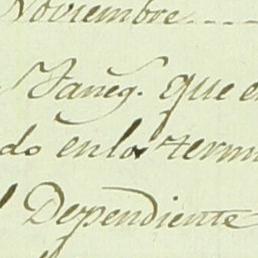 Noviembre
Faneg. que e
do en los term
l Dependiente